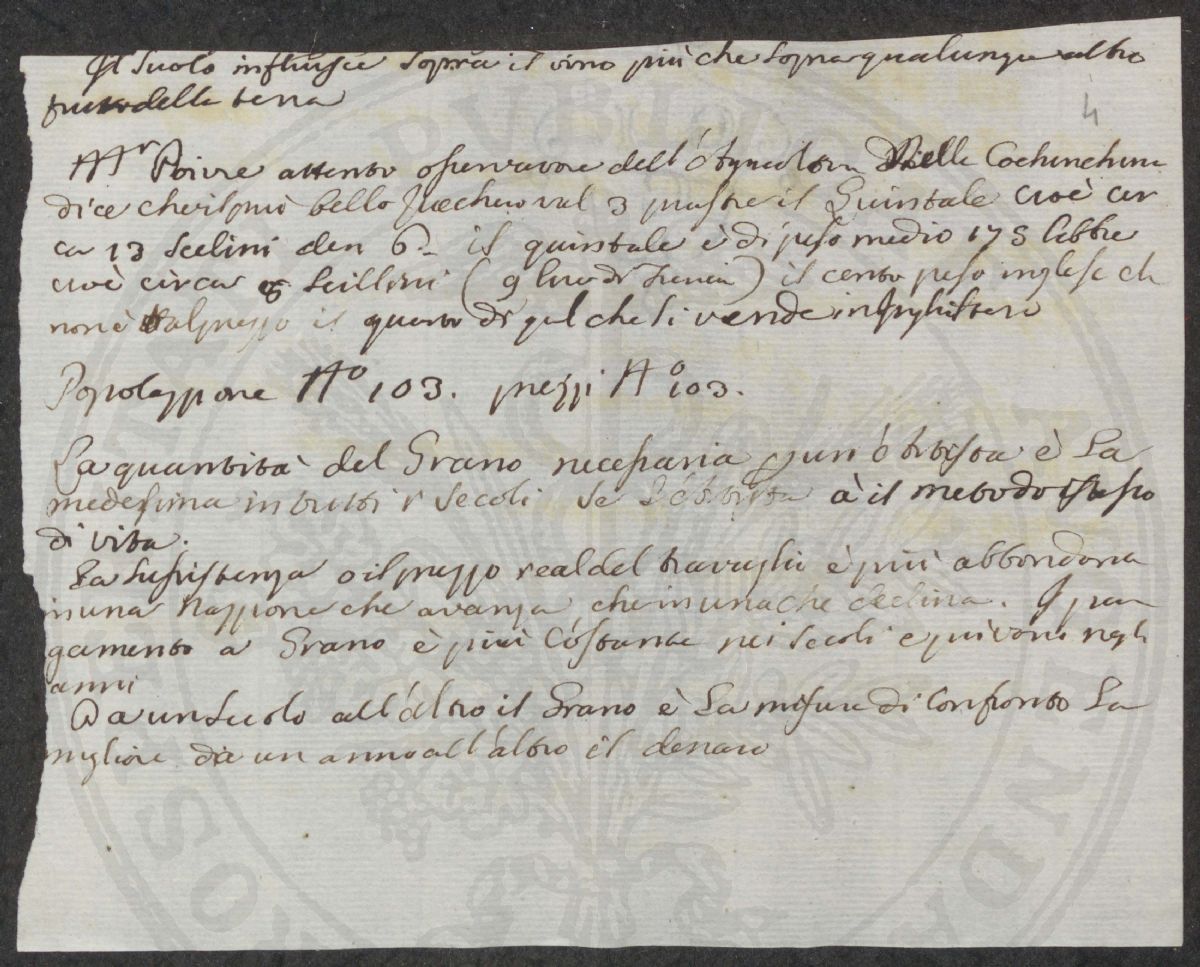 Il suolo influisce sopra il vino più che sopra qualunque altro
frutto della terra
4
Mr Poivre attento osservatore dell'Agricoltura della Cochinchina
dice che il più bello Zucchero val 3 piastre il Quintale cioè cir
ca 13 Scelini den 6. il quintale è di peso medio 175 libbre
cioè circa 8 Scillini (9 lire di Francia) il cento peso inglese ch
non è al prezzo il quarto di quel che si vende in Inghilterra
Popolazzione No 103. prezzi No 103.
La quantità del Grano necessaria p un Artista è La
medesima in tutti i secoli se L'Artista à il metodo istesso
di vita.
La sussistenza o il prezzo real del travaglio è più abbondana
in una Nazzione che avanza che in una che declina. Il pa
gamento a Grano è più Costante nei secoli e più vario negli
anni
Da un secolo all'altro il Grano è La misura di Confronto La
migliore da un anno all'altro il denaro